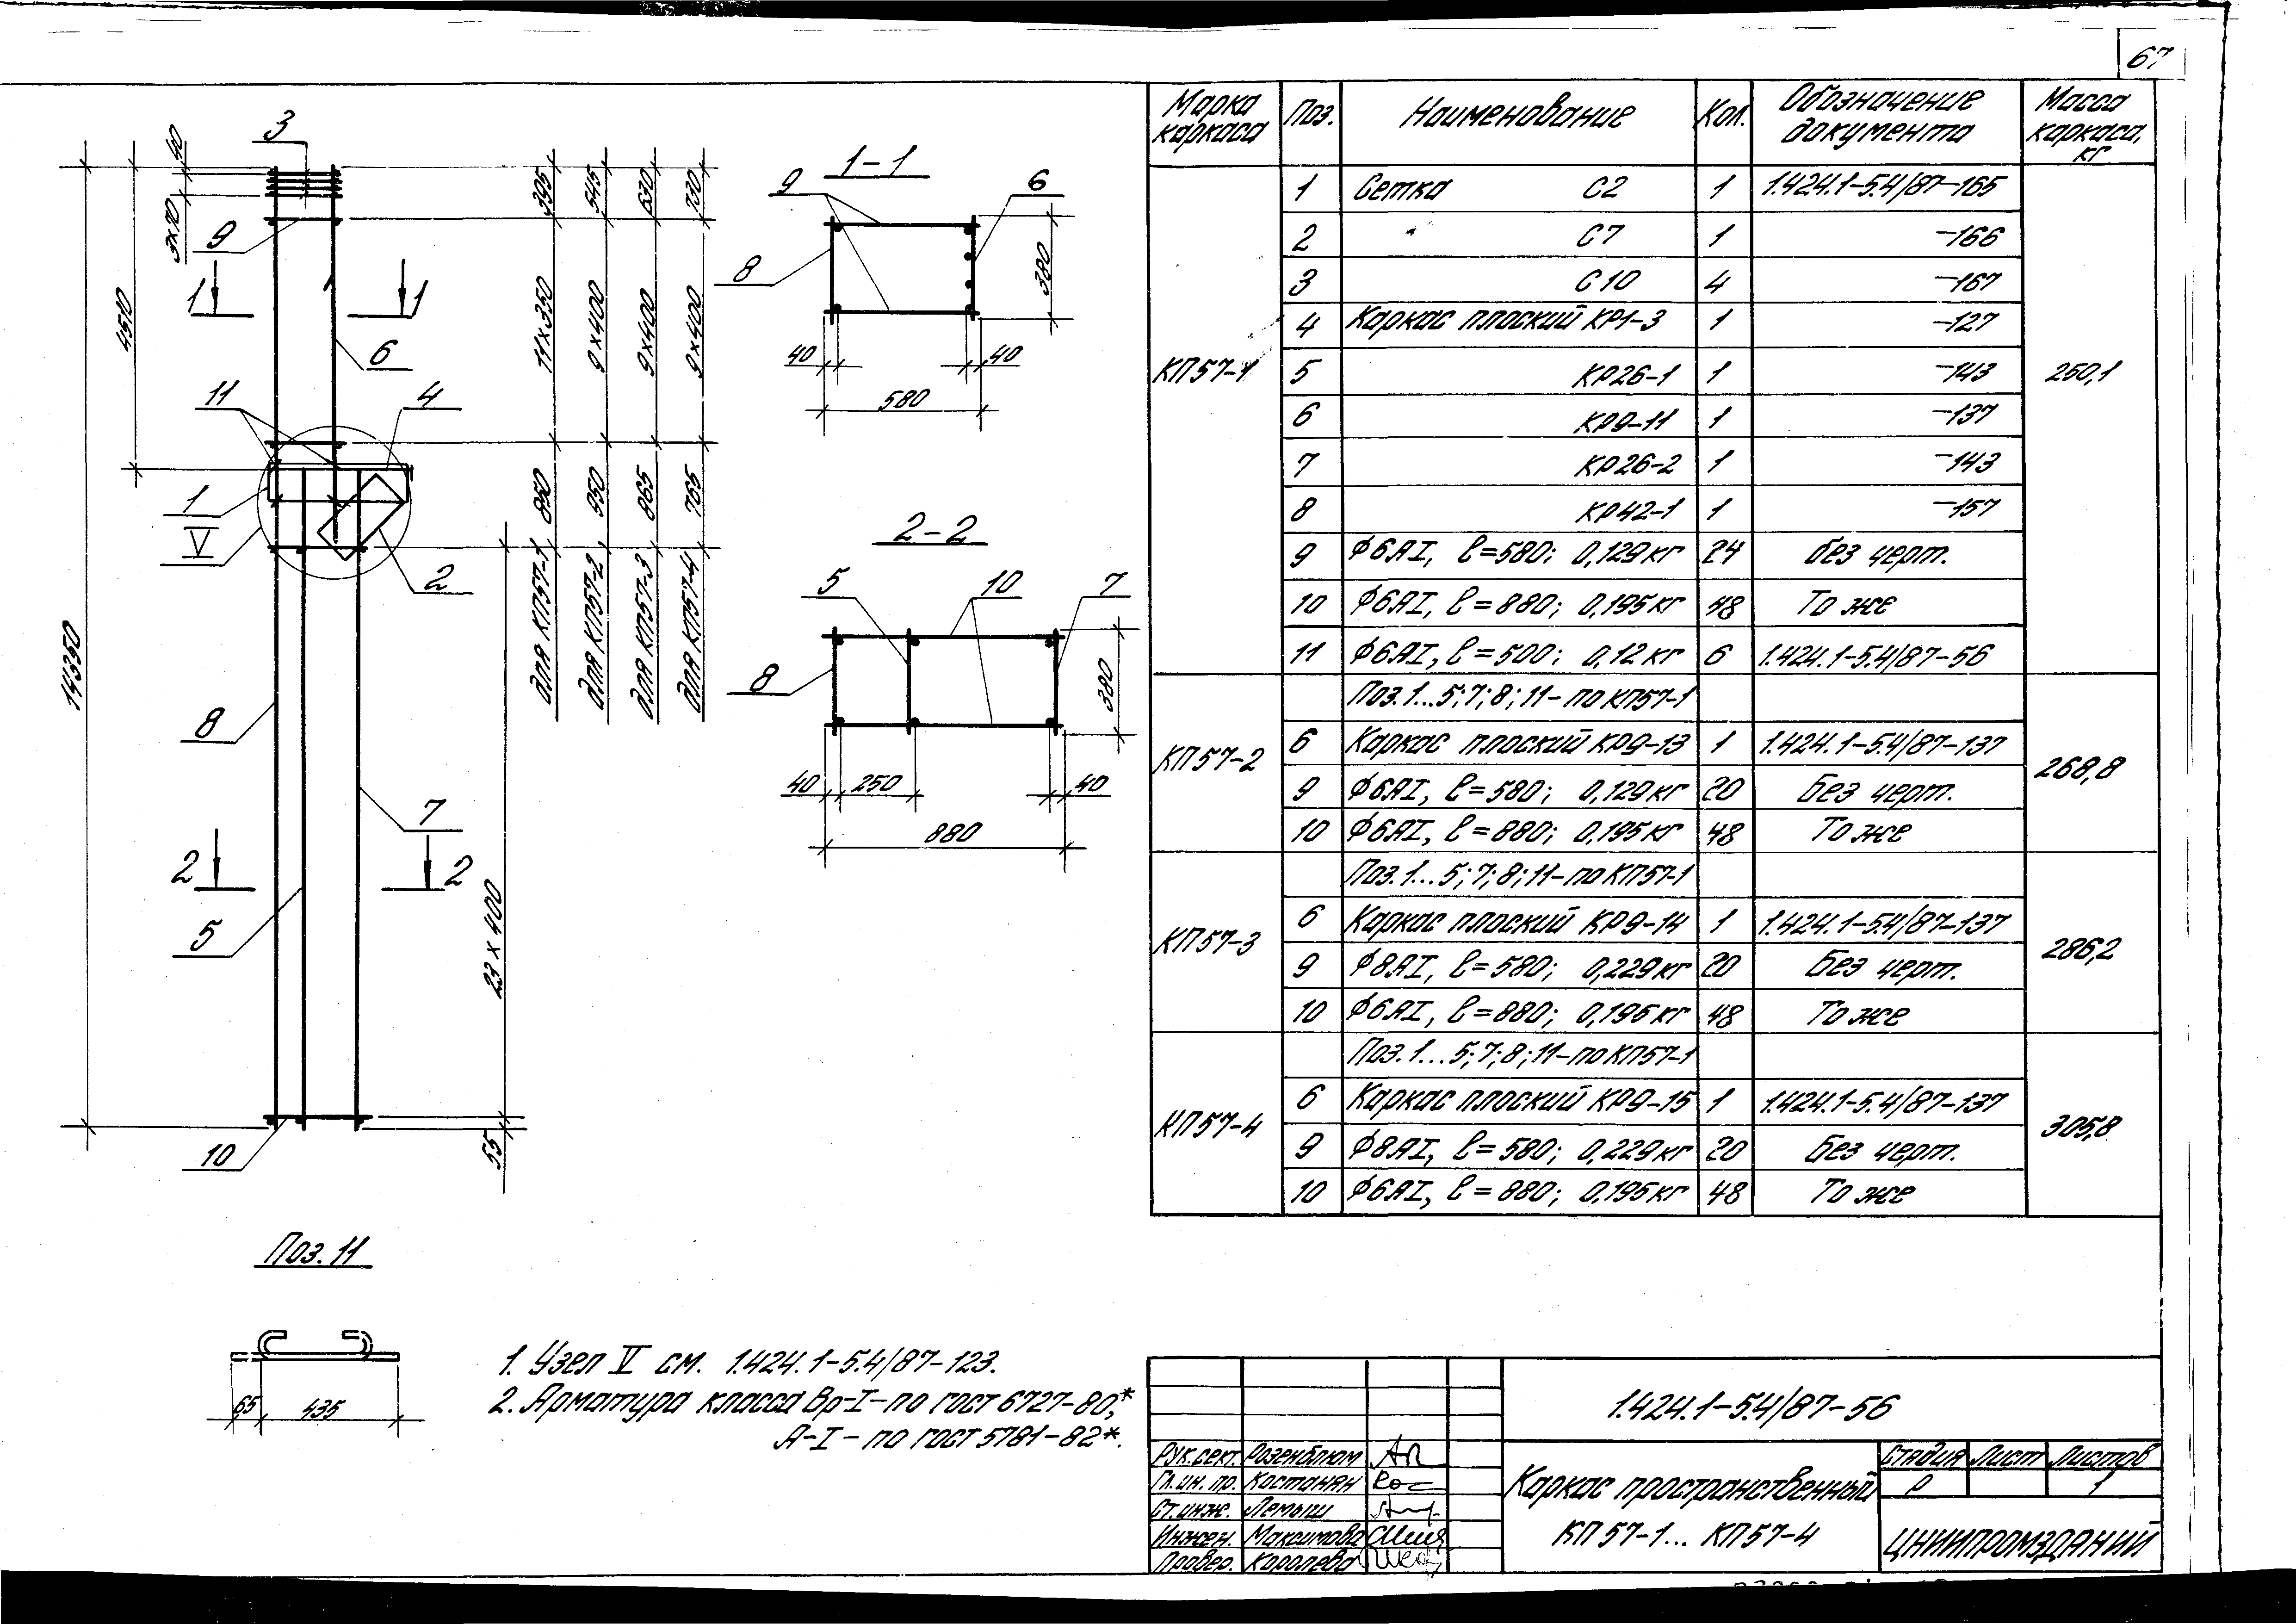 67
3
40
3х70
9
4510
1 1
6
11 4
1
V
2
14350
8
7
2 2
5
10
23 х 400
55
395 545 630 730
11х350 9х400 9х400 9х400
850 950 865 765
для КП57-1 для КП57-2 для КП57-3 для КП57-4
1-1
9 6
8
380
40 40
580
2-2
5 10 7
8
380
40 250 40
880
Марка каркаса Поз. Наименование Кол. Обозначение документа Масса каркаса, кг
КП57-1 250,1
1 Сетка С2 1 1.424.1-5.4/87-165
2 С7 1 -166
3 С10 4 -167
4 Каркас плоский КР1-3 1 -127
5 КР26-1 1 -143
6 КР9-11 1 -137
7 КР26-2 1 -143
8 КР42-1 1 -157
9 ф6АI, ℓ=580; 0,129кг 24 без черт.
10 ф6АI, ℓ=880; 0,195кг 48 То же
11 ф6АI, ℓ=500; 0,12кг 6 1.424.1-5.4/87-56
КП57-2 268,8
Поз.1...5;7;8;11-по КП57-1
6 Каркас плоский КР9-13 1 1.424.1-5.4/87-137
9 ф6АI, ℓ=580; 0,129кг 20 Без черт.
10 ф6АI, ℓ=880; 0,195кг 48 То же
КП57-3 286,2
Поз.1...5;7;8;11-по КП57-1
6 Каркас плоский КР9-14 1 1.424.1-5.4/87-137
9 ф8АI, ℓ=580; 0,229кг 20 Без черт.
10 ф6АI, ℓ=880; 0,195кг 48 То же
КП57-4 305,8
Поз.1...5;7;8;11-по КП57-1
6 Каркас плоский КР9-15 1 1.424.1-5.4/87-137
9 ф8АI, ℓ=580; 0,229кг 20 Без черт.
10 ф6АI, ℓ=880; 0,195кг 48 То же
Поз. 11
65 435
1. Узел V см. 1.424.1-5.4/87-123.
2. Арматура класса Вр-I-по ГОСТ 6727-80,*
А-I-по ГОСТ 5781-82*.
1.424.1-5.4/87-56
Рук.сект. Розенблюм
Гл.ин.пр. Костанян
Ст.инж. Лемыш
Инжен. Максимова
Провер. Королева
Каркас пространственный
КП57-1... КП57-4
Стадия Лист Листов
Р 1
ЦНИИПРОМЗДАНИЙ